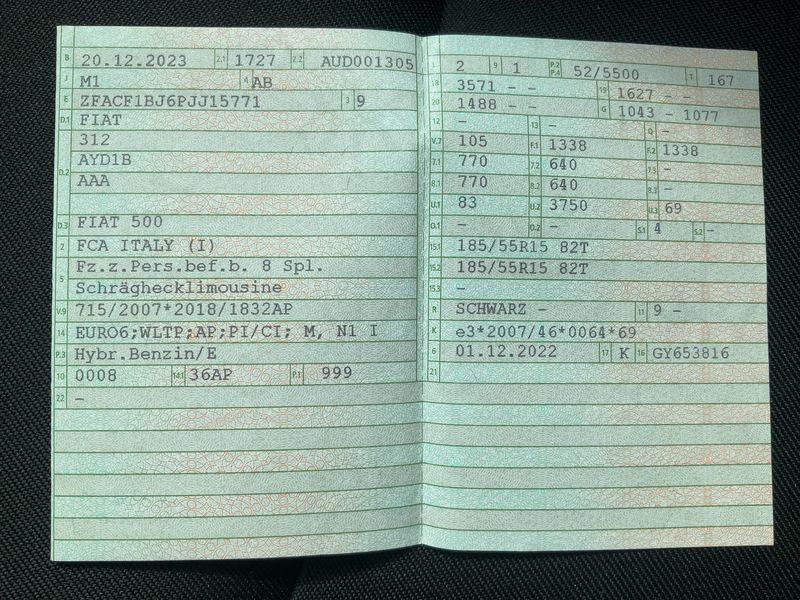 B 20.12.2023 2.1 1727 2.2 AUD001305
J M1 4 AB
E ZFACF1BJ6PJJ15771 3 9
D.1 FIAT
312
D.2 AYD1B
AAA
D.3 FIAT 500
2 FCA ITALY (I)
5 Fz.z.Pers.bef.b. 8 Spl.
Schräghecklimousine
V.9 715/2007*2018/1832AP
14 EURO6;WLTP;AP;PI/CI; M, N1 I
P.3 Hybr.Benzin/E
10 0008 14.1 36AP P.1 999
22 -
L 2 9 1 P.2 P.4 52/5500 T 167
18 3571 - - 19 1627 - -
20 1488 - - G 1043 - 1077
12 - 13 - Q -
V.7 105 F.1 1338 F.2 1338
7.1 770 7.2 640 7.3 -
8.1 770 8.2 640 8.3 -
U.1 83 U.2 3750 U.3 69
O.1 - O.2 - S.1 4 S.2 -
15.1 185/55R15 82T
15.2 185/55R15 82T
15.3 -
R SCHWARZ - 11 9 -
K e3*2007/46*0064*69
6 01.12.2022 17 K 16 GY653816
21